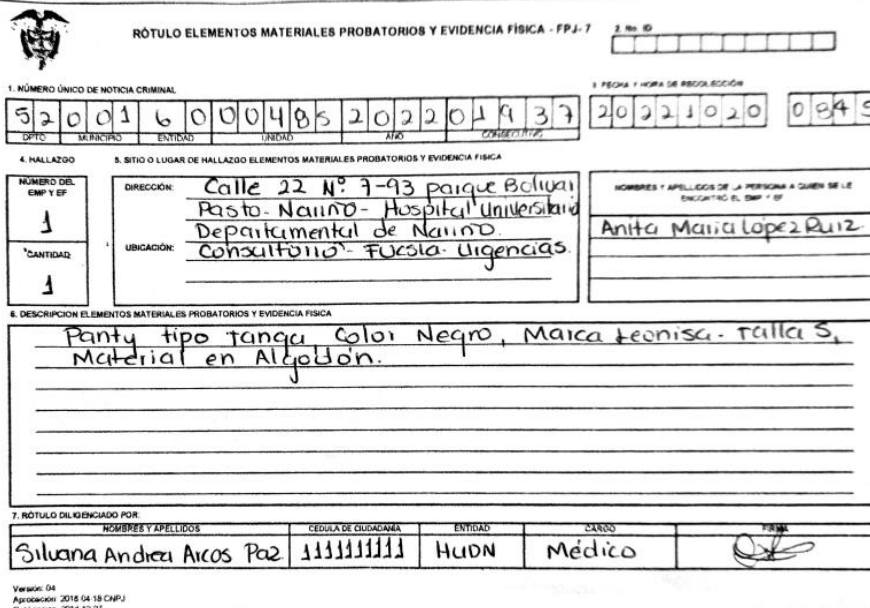 RÓTULO ELEMENTOS MATERIALES PROBATORIOS Y EVIDENCIA FÍSICA - FPJ- 7
2. No. ID
1. NÚMERO ÚNICO DE NOTICIA CRIMINAL
3. FECHA Y HORA DE RECOLECCIÓN
5 2 0 0 1 6 0 0 0 4 8 5 2 0 2 2 0 1 9 3 7
2 0 2 2 1 0 2 0
DPTO MUNICIPIO ENTIDAD UNIDAD AÑO CONSECUTIVO
4. HALLAZGO
5. SITIO O LUGAR DE HALLAZGO ELEMENTOS MATERIALES PROBATORIOS Y EVIDENCIA FISICA
NÚMERO DEL EMP Y EF
1
CANTIDAD
1
DIRECCIÓN: Calle 22 Nº 7-93 parque Bolivar
Pasto - Nariño - Hospital Universitario
Departamental de Nariño.
UBICACIÓN: Consultorio - Fucsia - Urgencias.
NOMBRES Y APELLIDOS DE LA PERSONA A QUIEN SE LE
ENCONTRÓ EL EMP Y EF
Anita Maria Lopez Ruiz.
6. DESCRIPCION ELEMENTOS MATERIALES PROBATORIOS Y EVIDENCIA FISICA
Panty tipo tanga, Color Negro, Marca Leonisa - Talla S,
Material en Algodón.
7. RÓTULO DILIGENCIADO POR:
NOMBRES Y APELLIDOS CEDULA DE CIUDADANÍA ENTIDAD CARGO FIRMA
Silvana Andrea Arcos Paz 1111111111 HUDN Médico
Version: 04
Aprobación: 2018 04 18 CNPJ